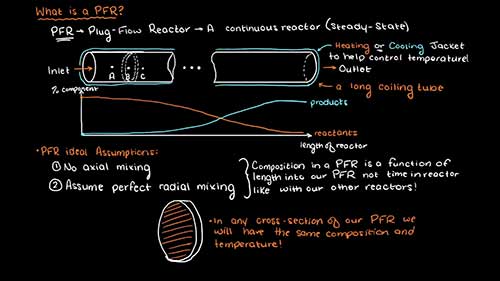 What is a PFR?
PFR → Plug-Flow Reactor → A continuous reactor (Steady-State)
Heating or Cooling Jacket
to help control temperature!
Inlet →
A B C
→ Outlet
a long coiling tube
% component
products
reactants
length of reactor
• PFR ideal Assumptions:
① No axial mixing
② Assume perfect radial mixing
Composition in a PFR is a function of
length into our PFR not time in reactor
like with our other reactors!
• In any cross-section of our PFR we
will have the same composition and
temperature!